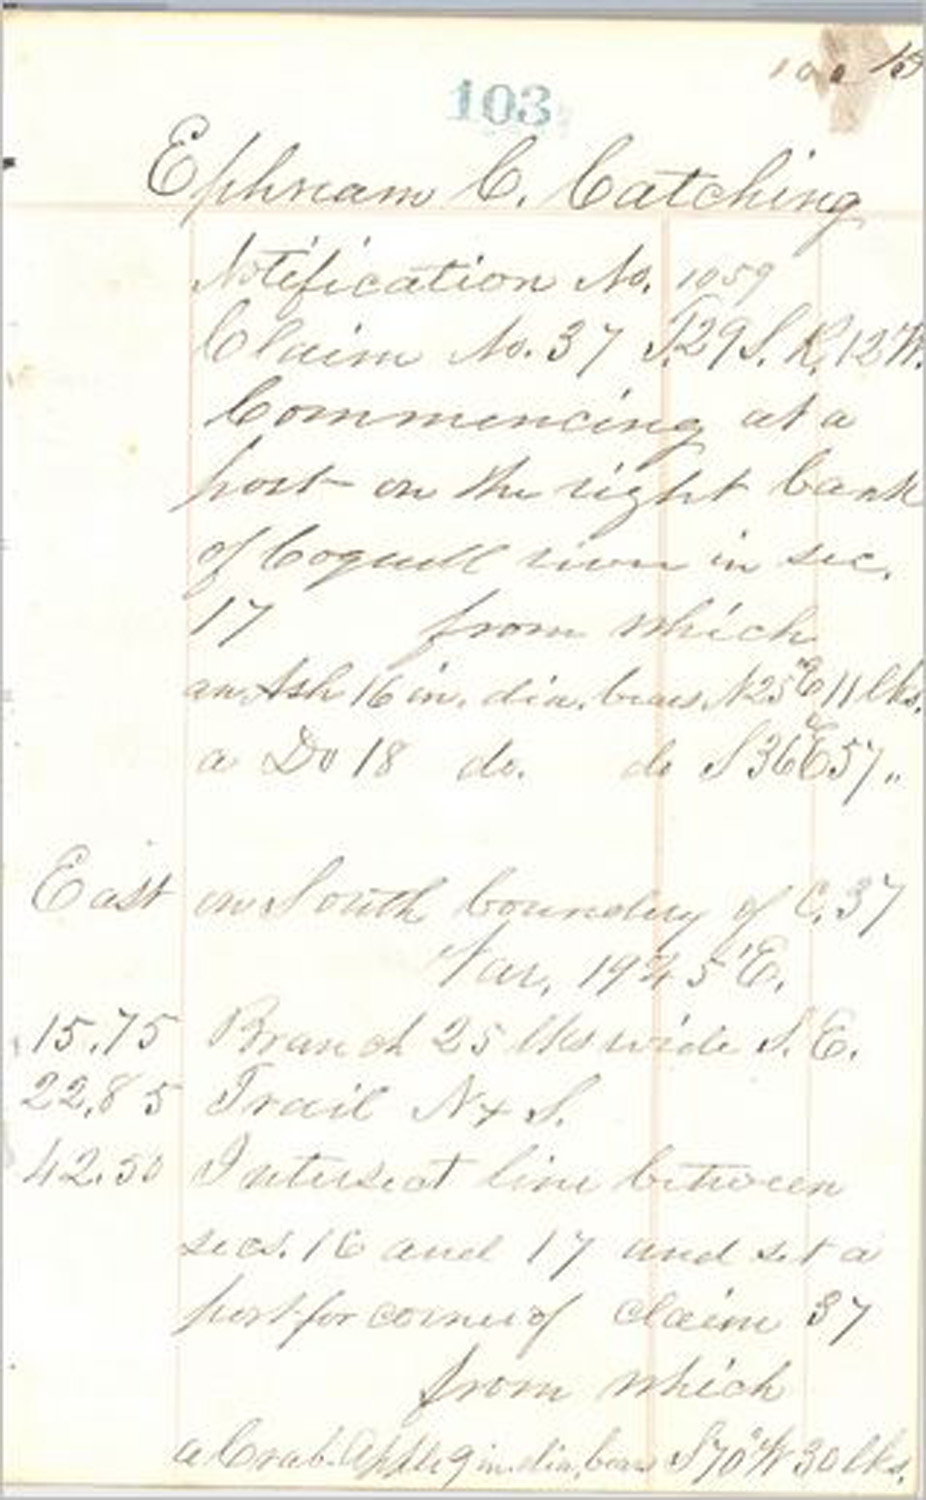 103
Ephriam C. Catching
Notification No. 1059
Claim No. 37 T.29 S. R. 12 W.
Commencing at a
post on the right bank
of Coquell river in sec.
17 from which
an Ash 16 in. dia. bears N25°E 11 lks.
a Do 18 do. do S36°E 57 "
East on South boundry of C. 37
Var. 19° 45' E.
15.75 Branch 25 lks wide S. E.
22.85 Trail N & S.
42.50 Intersect line between
secs. 16 and 17 and set a
post for corner of claim 37
from which
a Crab Apple 9 in. dia. bears S70°W 30 lks.